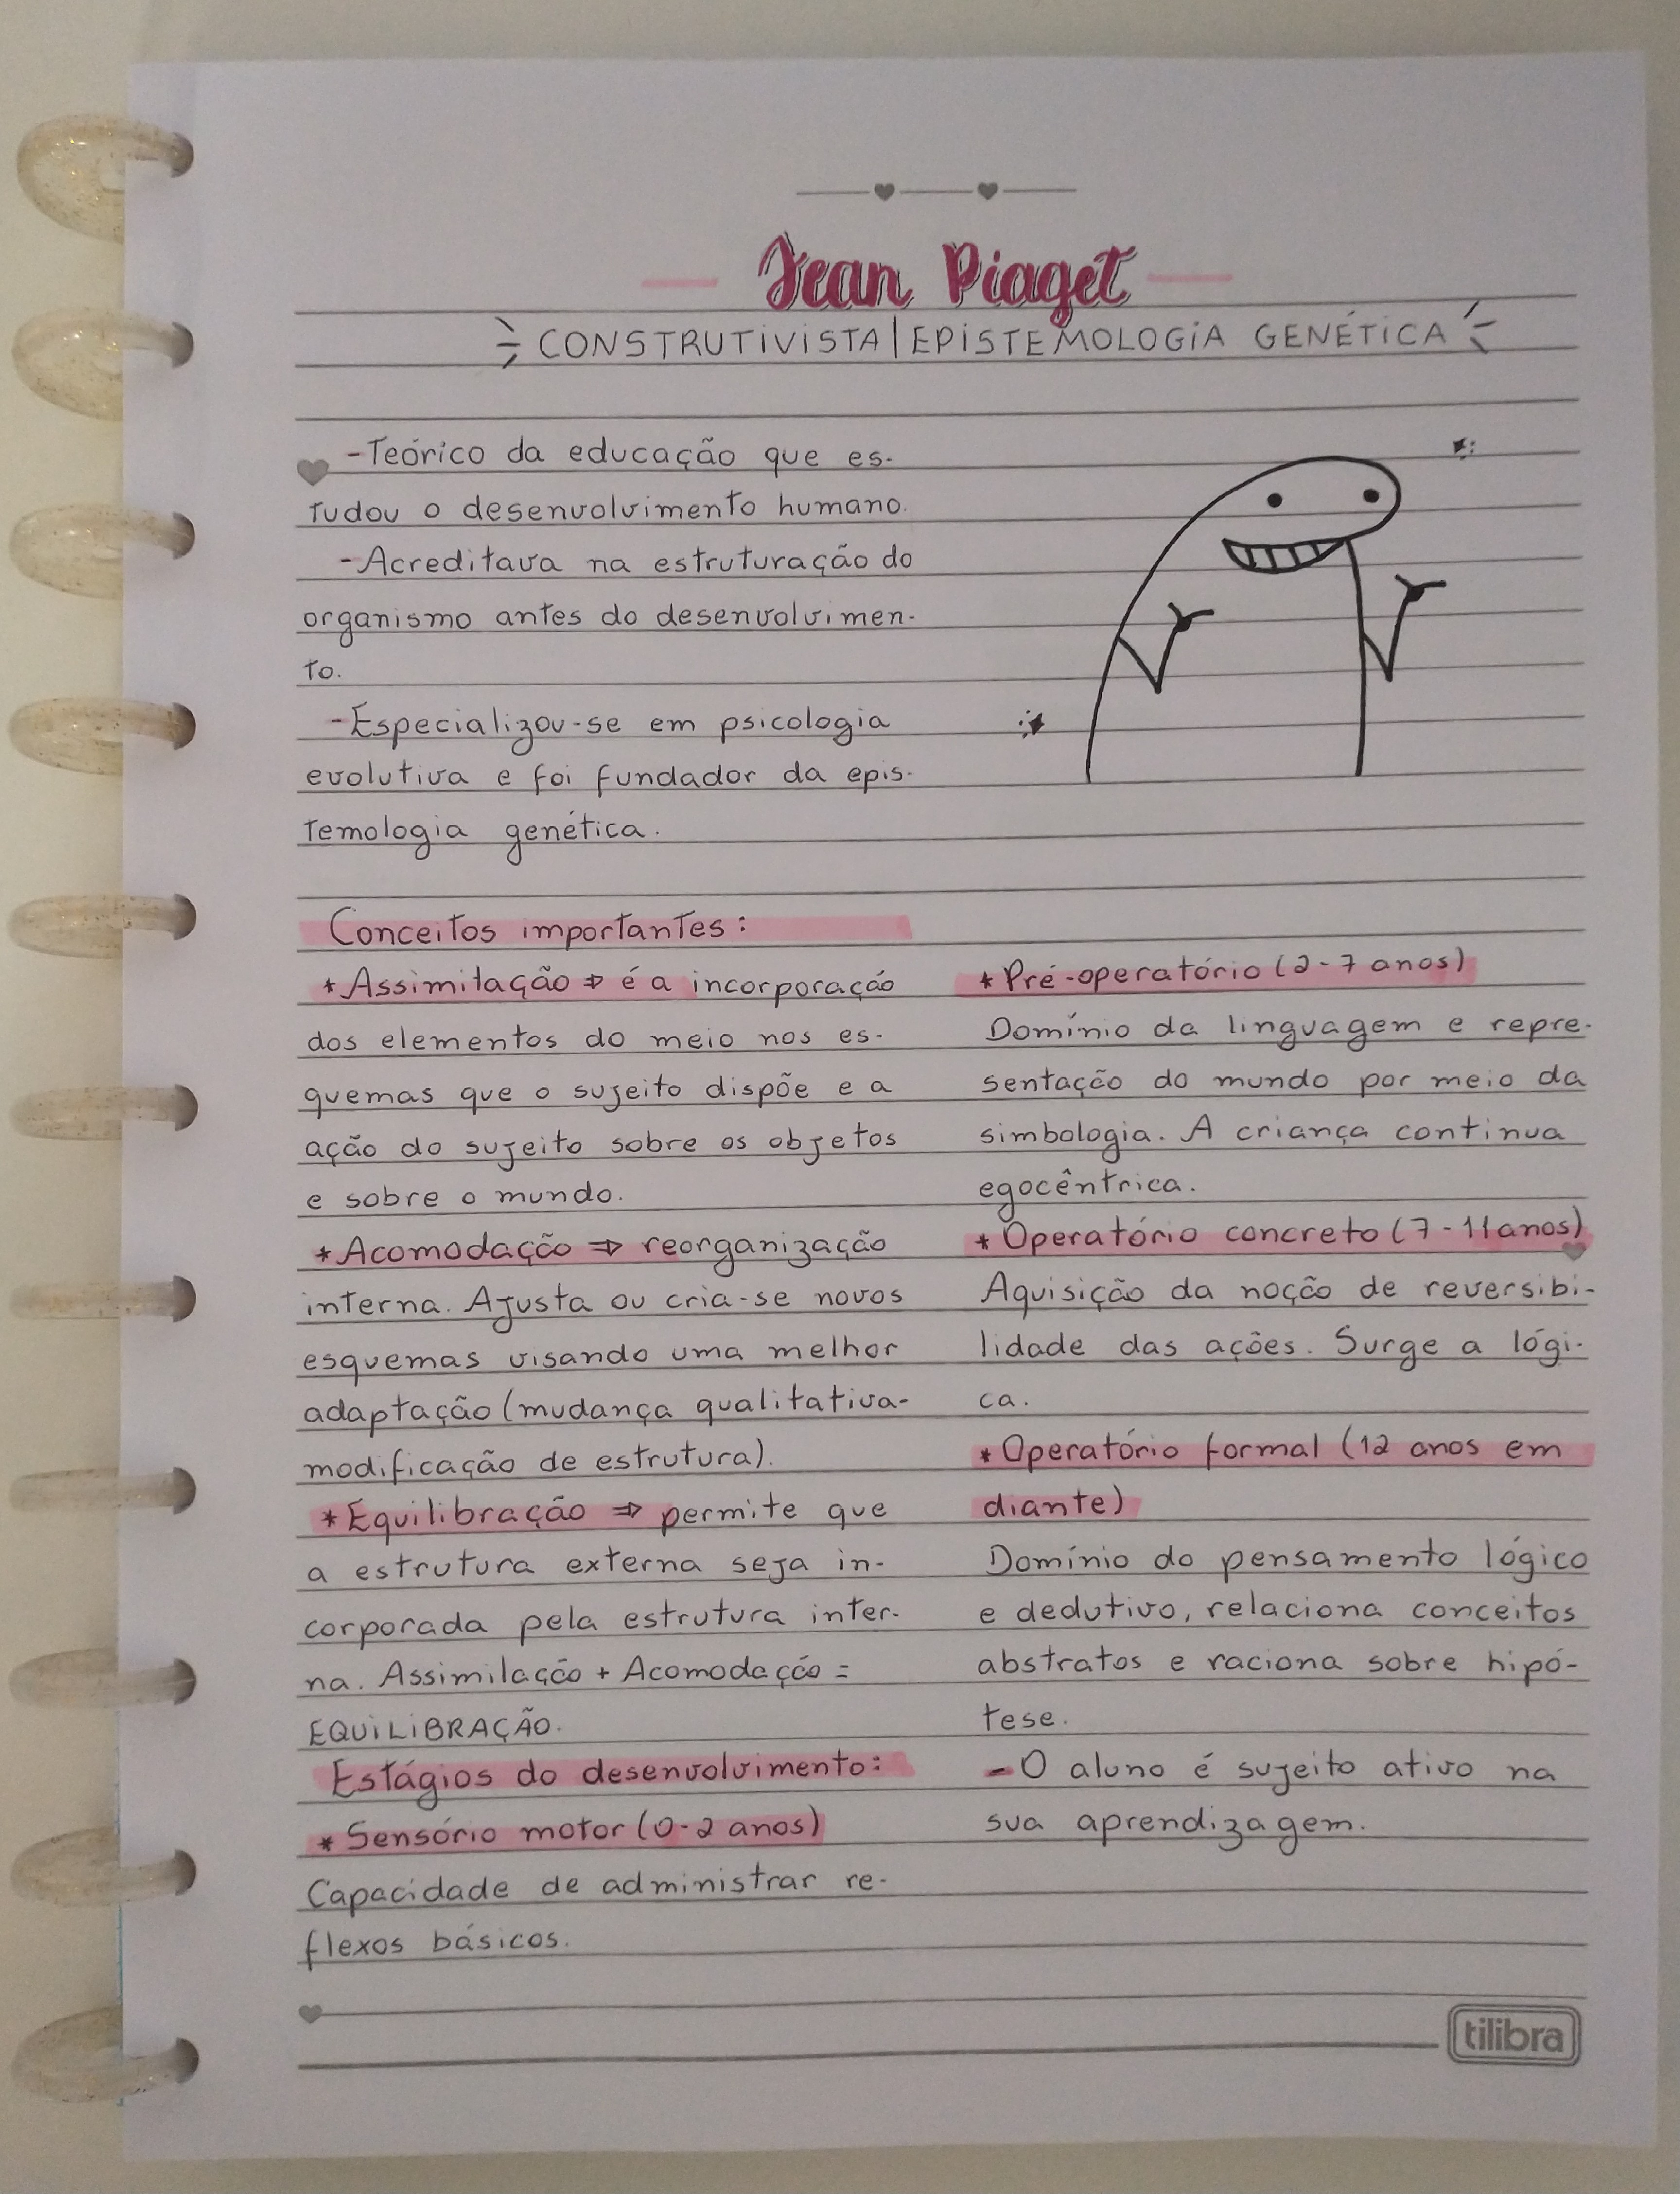 Jean Piaget
CONSTRUTIVISTA|EPISTEMOLOGIA GENÉTICA
-Teórico da educação que es-
tudou o desenvolvimento humano.
-Acreditava na estruturação do
organismo antes do desenvolvimen-
to.
-Especializou-se em psicologia
evolutiva e foi fundador da epis-
temologia genética.
Conceitos importantes:
*Assimilação ⇒ é a incorporação
dos elementos do meio nos es-
quemas que o sujeito dispõe e a
ação do sujeito sobre os objetos
e sobre o mundo.
*Acomodação ⇒ reorganização
interna. Ajusta ou cria-se novos
esquemas visando uma melhor
adaptação (mudança qualitativa-
modificação de estrutura).
*Equilibração ⇒ permite que
a estrutura externa seja in-
corporada pela estrutura inter-
na. Assimilação + Acomodação =
EQUILIBRAÇÃO.
Estágios do desenvolvimento:
* Sensório motor (0-2 anos)
Capacidade de administrar re-
flexos básicos.
*Pré-operatório (2-7 anos)
Domínio da linguagem e repre-
sentação do mundo por meio da
simbologia. A criança continua
egocêntrica.
*Operatório concreto (7-11 anos)
Aquisição da noção de reversibi-
lidade das ações. Surge a lógi-
ca.
*Operatório formal (12 anos em
diante)
Domínio do pensamento lógico
e dedutivo, relaciona conceitos
abstratos e raciona sobre hipó-
tese.
-O aluno é sujeito ativo na
sua aprendizagem.
tilibra